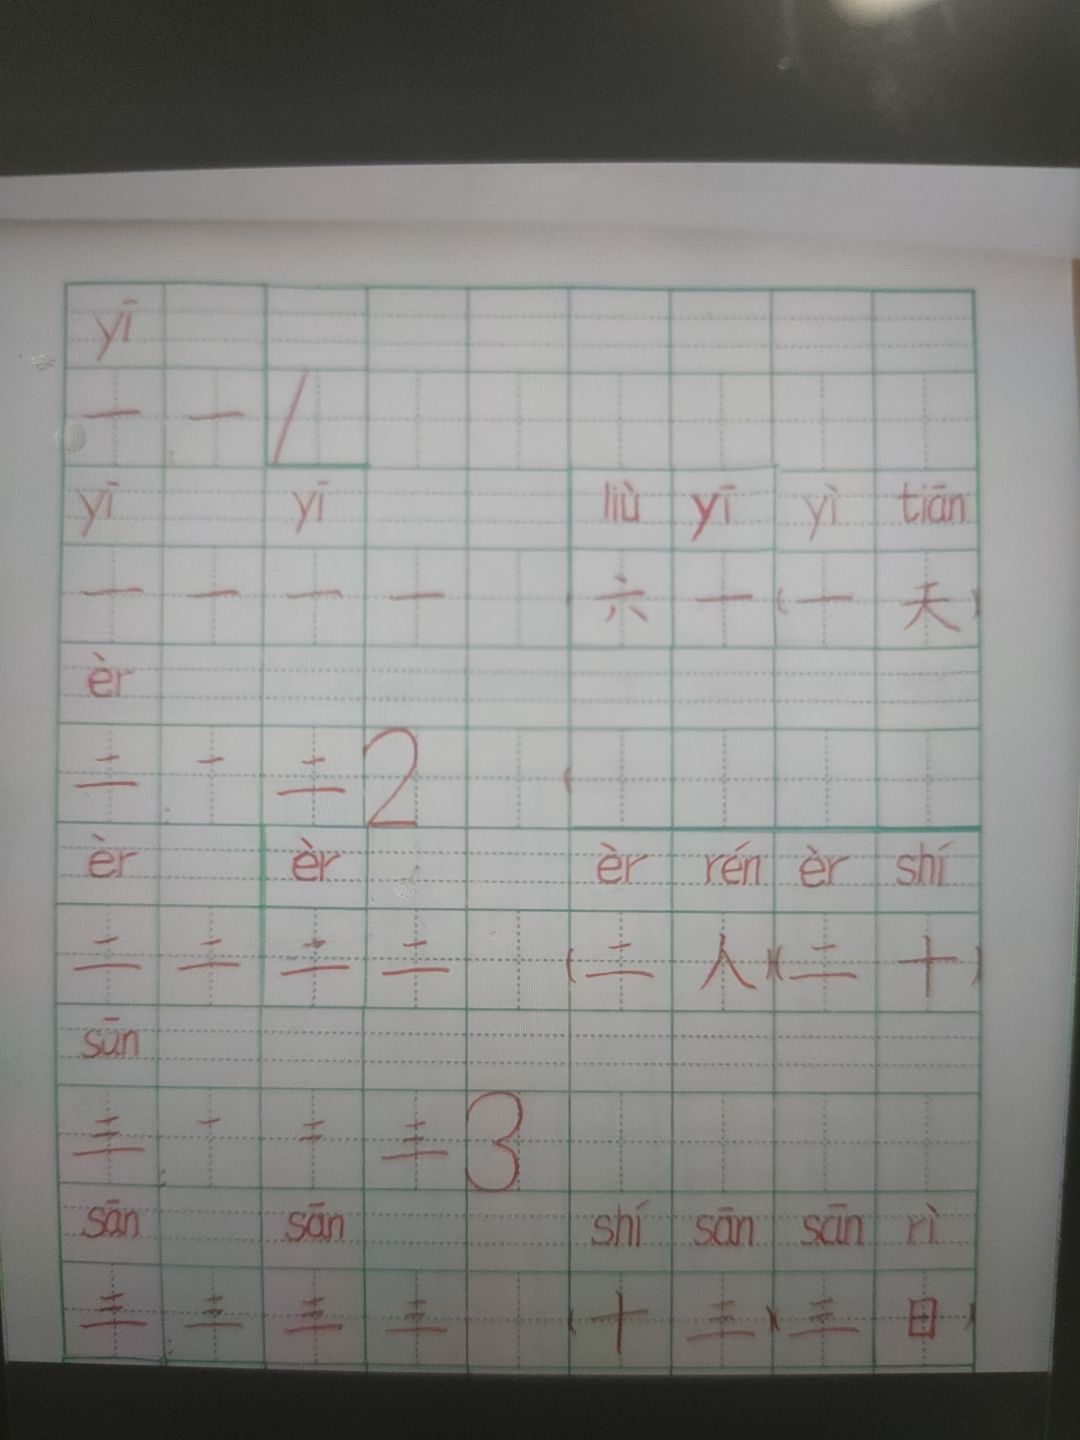 yī
一 一 1
yī yī liù yī yì tiān
一 一 一 一 六 一 (一 天)
èr
二 一 二 2 (
èr èr èr rén èr shí
二 二 二 二 (二 人)(二 十)
sān
三 一 二 三 3
sān sān shí sān sān rì
三 三 三 三 (十 三)(三 日)